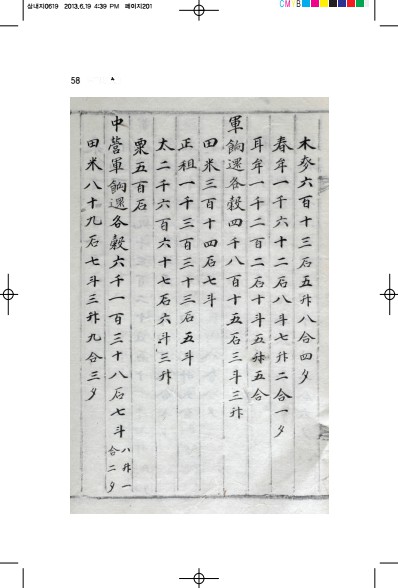 삼내지0619 2013.6.19 4:39 PM 페이지201
CMYB
58
木麥六百十三石五升八合四夕
春牟一千六十二石八斗七升二合一夕
耳牟一千二百二石十斗五升五合
軍餉還各糓四千八百十五石三斗三升
田米三百十四石七斗
正租一千三百三十三石五斗
太二千六百六十七石六斗三升
粟五百石
中營軍餉還各糓六千一百三十八石七斗八升一合二夕
田米八十九石七斗三升九合三夕